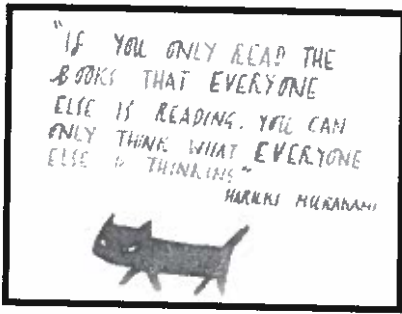 "IF YOU ONLY READ THE
BOOKS THAT EVERYONE
ELSE IS READING. YOU CAN
ONLY THINK WHAT EVERYONE
ELSE IS THINKING"
HARUKI MURAKAMI